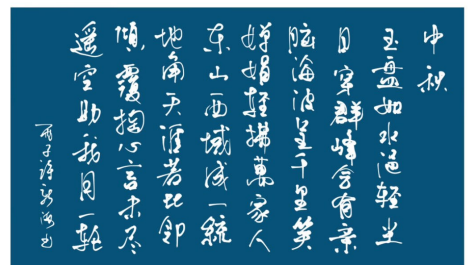 中秋
玉盘如水浥轻尘
目穿群峰会有亲
脑海波呈千里笑
婵娟轻拂萬家人
东山西域成一統
地角天涯若比邻
倾覆掏心言未尽
遥空助我月一轮